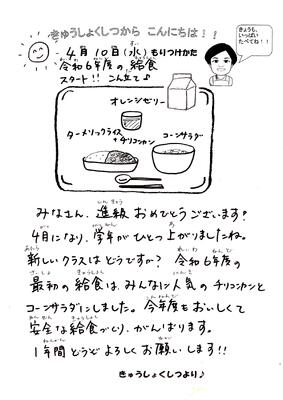 きゅうしょくしつから こんにちは!!
きょうも、
いっぱい
たべてね!!
4月10日(水)もりつけかた
令和6年度の給食
スタート!! こんだて♪
オレンジゼリー
ターメリックライス
+チリコンカン
コーンサラダ
みなさん、進級おめでとうございます!
4月になり、学年がひとつ上がりましたね。
新しいクラスはどうですか? 令和6年度の
最初の給食は、みんなに人気のチリコンカンと
コーンサラダにしました。今年度もおいしくて
安全な給食づくり、がんばります。
1年間どうぞよろしくお願いします!!
きゅうしょくしつより♪